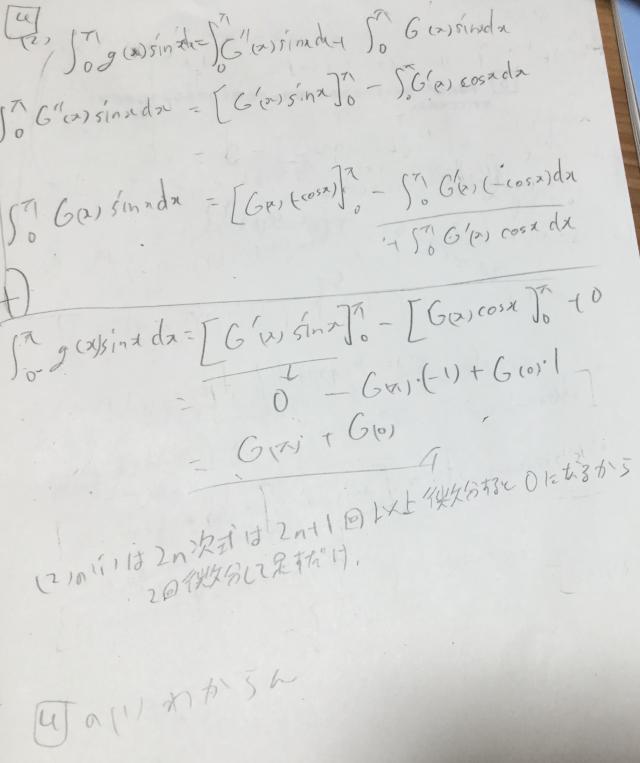 4
(2) ∫₀^π g(x) sin x dx = ∫₀^π G''(x) sin x dx + ∫₀^π G(x) sin x dx
∫₀^π G''(x) sin x dx = [G'(x) sin x]₀^π - ∫₀^π G'(x) cos x dx
∫₀^π G(x) sin x dx = [G(x)(-cos x)]₀^π - ∫₀^π G'(x)(-cos x) dx
+ ∫₀^π G'(x) cos x dx
+)
∫₀^π g(x) sin x dx = [G'(x) sin x]₀^π - [G(x) cos x]₀^π + 0
= 0 - G(π)·(-1) + G(0)·1
= G(π) + G(0)
(2)の(i)は2n次式は2n+1回以上微分すると0になるから
2回微分して足すだけ.
4 の(1)わからん